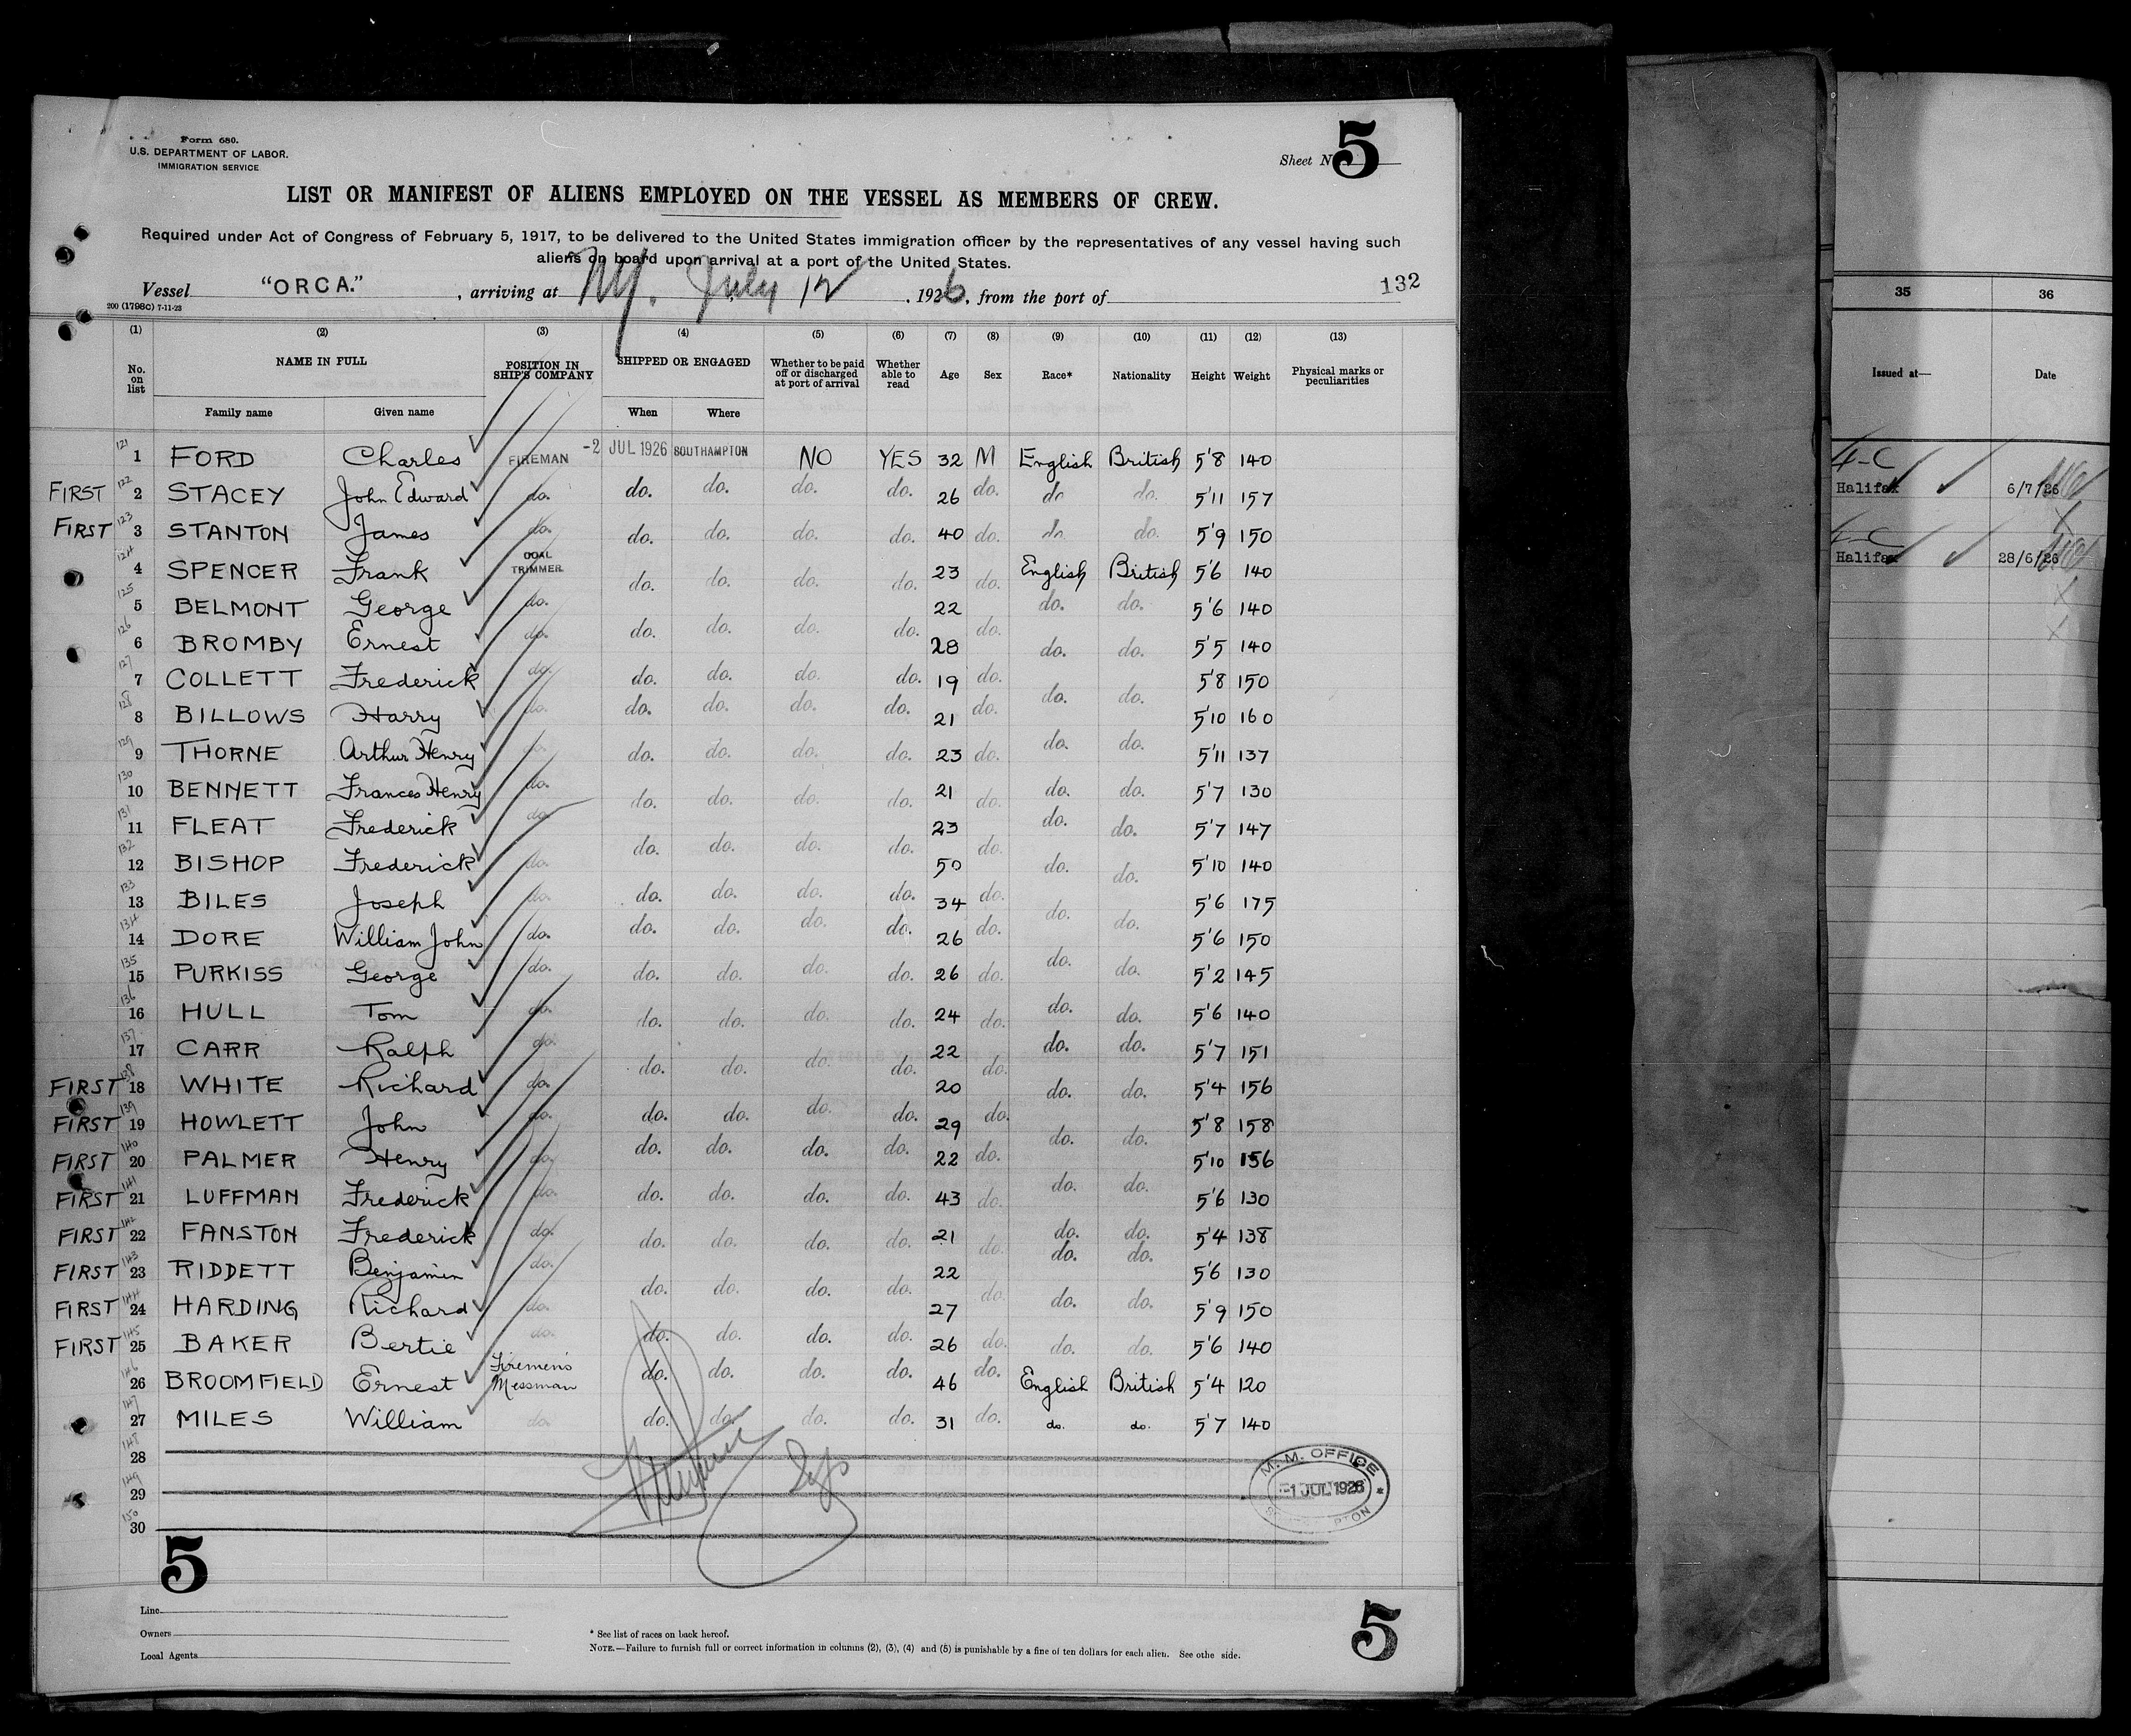 Form 680.
U.S. DEPARTMENT OF LABOR.
IMMIGRATION SERVICE
Sheet N 5
LIST OR MANIFEST OF ALIENS EMPLOYED ON THE VESSEL AS MEMBERS OF CREW.
Required under Act of Congress of February 5, 1917, to be delivered to the United States immigration officer by the representatives of any vessel having such
aliens on board upon arrival at a port of the United States.
Vessel "ORCA." , arriving at NY. July 12 , 1926, from the port of 132
200 (1798C) 7-11-23
(1) (2) (3) (4) (5) (6) (7) (8) (9) (10) (11) (12) (13)
No. on list NAME IN FULL POSITION IN SHIP'S COMPANY SHIPPED OR ENGAGED Whether to be paid off or discharged at port of arrival Whether able to read Age Sex Race* Nationality Height Weight Physical marks or peculiarities
Family name Given name When Where
121 1 FORD Charles FIREMAN -2 JUL 1926 SOUTHAMPTON NO YES 32 M English British 5'8 140
FIRST 122 2 STACEY John Edward do. do. do. do. do. 26 do. do do. 5'11 157
FIRST 123 3 STANTON James do. do. do. do. do. 40 do. do. do. 5'9 150
124 4 SPENCER Frank COAL TRIMMER do. do. do. do. 23 do. English British 5'6 140
125 5 BELMONT George do. 22 do. do. 5'6 140
126 6 BROMBY Ernest do. do. do. do. do. 28 do. do. do. 5'5 140
127 7 COLLETT Frederick do. do. do. do. do. 19 do. do. do. 5'8 150
128 8 BILLOWS Harry do. do. do. do. do. 21 do. 5'10 160
129 9 THORNE Arthur Henry do. do. do. do. do. 23 do. do. do. 5'11 137
130 10 BENNETT Frances Henry do. do. do. do. do. 21 do. do. do. 5'7 130
131 11 FLEAT Frederick do. 23 do. do. 5'7 147
132 12 BISHOP Frederick do. do. do. do. do. 50 do. do. do. 5'10 140
133 13 BILES Joseph do. do. do. do. do. 34 do. do. 5'6 175
134 14 DORE William John do. do. do. do. do. 26 do. do. do. 5'6 150
135 15 PURKISS George do. do. do. do. do. 26 do. do. do. 5'2 145
136 16 HULL Tom do. do. do. do. do. 24 do. do. do. 5'6 140
137 17 CARR Ralph do. do. 22 do. do. 5'7 151
FIRST 138 18 WHITE Richard do. do. do. do. 20 do. do. do. 5'4 156
FIRST 139 19 HOWLETT John do. do. do. do. do. 29 do. 5'8 158
FIRST 140 20 PALMER Henry do. do. do. do. do. 22 do. do. do. 5'10 156
FIRST 141 21 LUFFMAN Frederick do. do. do. do. do. 43 do. do. do. 5'6 130
FIRST 142 22 FANSTON Frederick do. do. do. do. do. 21 do. do. do. 5'4 138
FIRST 143 23 RIDDETT Benjamin do. 22 do. do. 5'6 130
FIRST 144 24 HARDING Richard do. do. do. do. do. 27 do. do. do. 5'9 150
FIRST 145 25 BAKER Bertie do. do. do. do. do. 26 do. do. do. 5'6 140
146 26 BROOMFIELD Ernest Firemen's Messman do. do. do. do. 46 do. English British 5'4 120
147 27 MILES William do. do. do. do. do. 31 do. do. do. 5'7 140
148 28
149 29
150 30
M. M. OFFICE
-1 JUL 1926
5
Line
Owners
Local Agents
* See list of races on back hereof.
NOTE.—Failure to furnish full or correct information in columns (2), (3), (4) and (5) is punishable by a fine of ten dollars for each alien. See othe side.
5
35 36
Issued at— Date
4-C
Halifax 6/7/26
4-C
Halifax 28/6/26